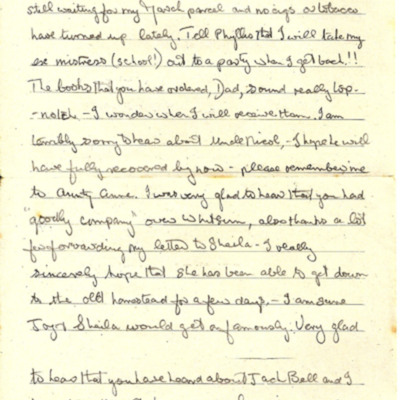 still waiting for my March parcel and no cigs or tobacco
have turned up lately. Tell Phyllis that I will take my
ex mistress (school!) out to a party when I get back!!
The books that you have ordered, Dad, sound really top-
-notch - I wonder when I will receive them. I am
terribly sorry to hear about Uncle Nicol, - I hope he will
have fully recovered by now - please remember me
to Aunty Anne. I was very glad to hear that you had
"goodly company" over Whitsun, also thanks a lot
for forwarding my letter to Sheila - I really
sincerely hope that she has been able to get down
to the old homestead for a few days, - I am sure
Joy & Sheila would get on famously. Very glad
to hear that you have heard about Jack Bell and I